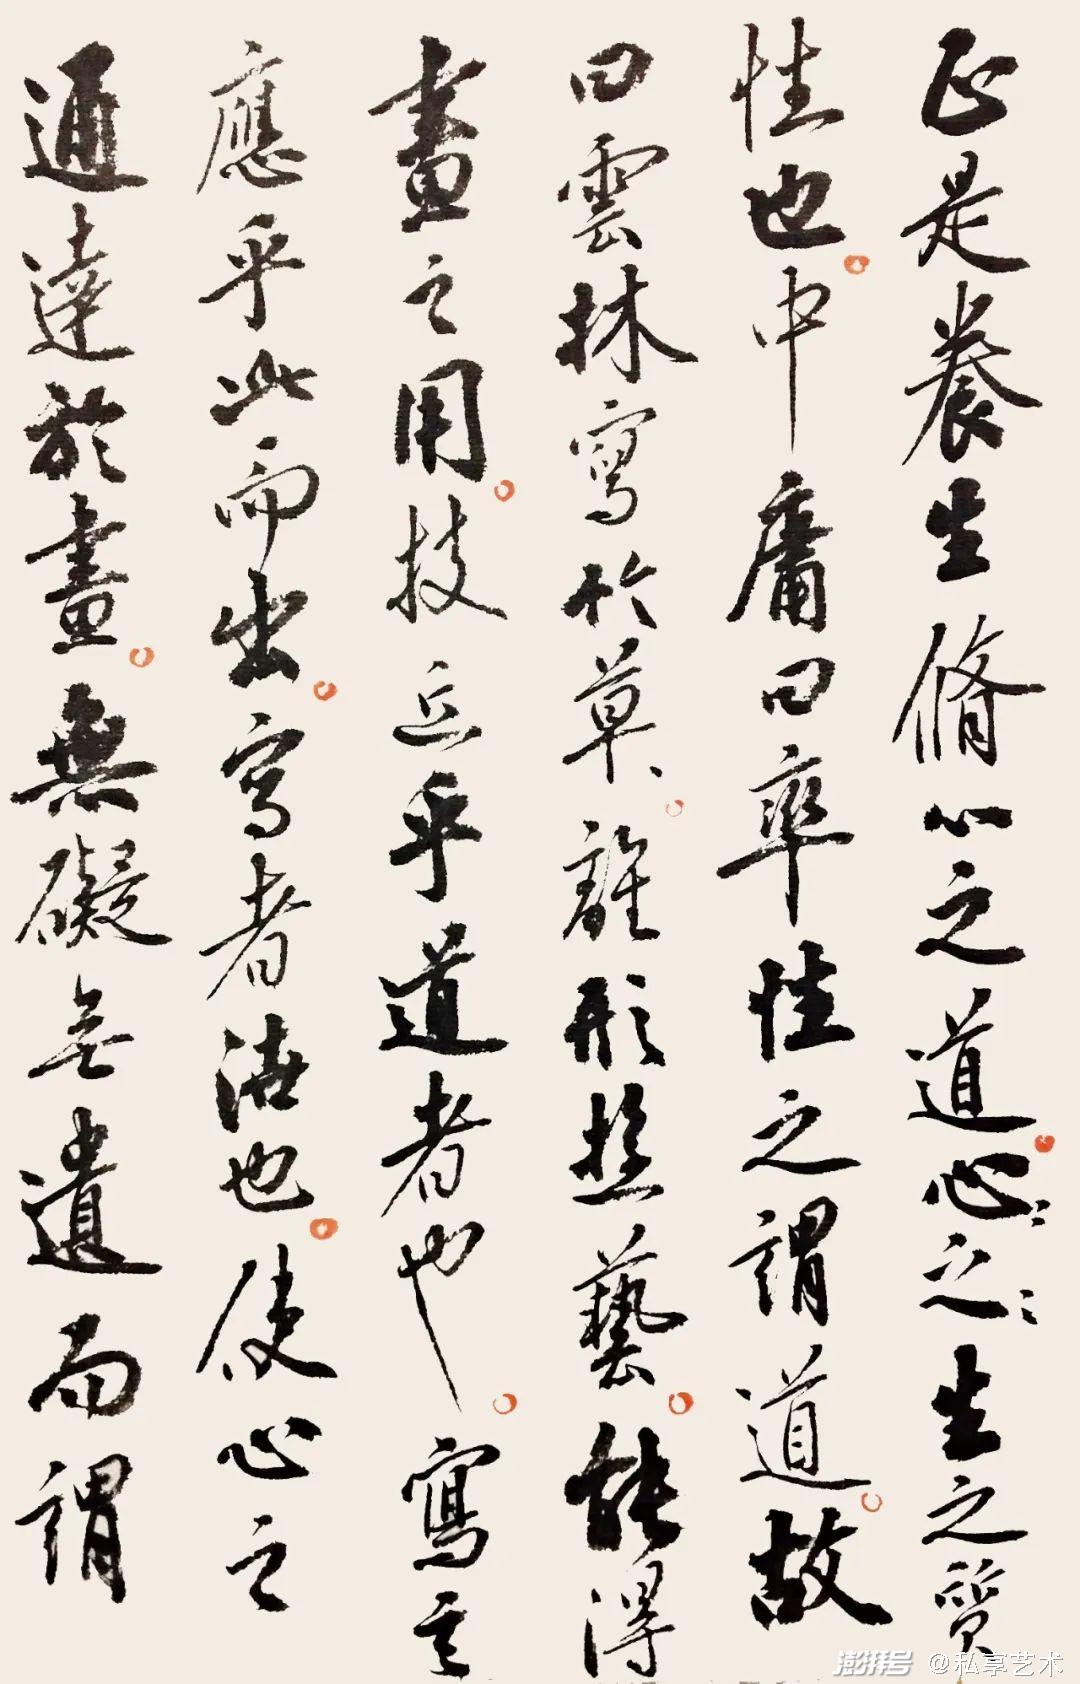 正是養生脩心之道心〻之〻生之質
性也中庸曰率性之謂道故
曰雲林寫於草、離形藝能得
畫之用技近乎道者也寫
應乎此而出寫者也使心之
通達於畫無礙無遺而謂
澎湃号 @私享艺术